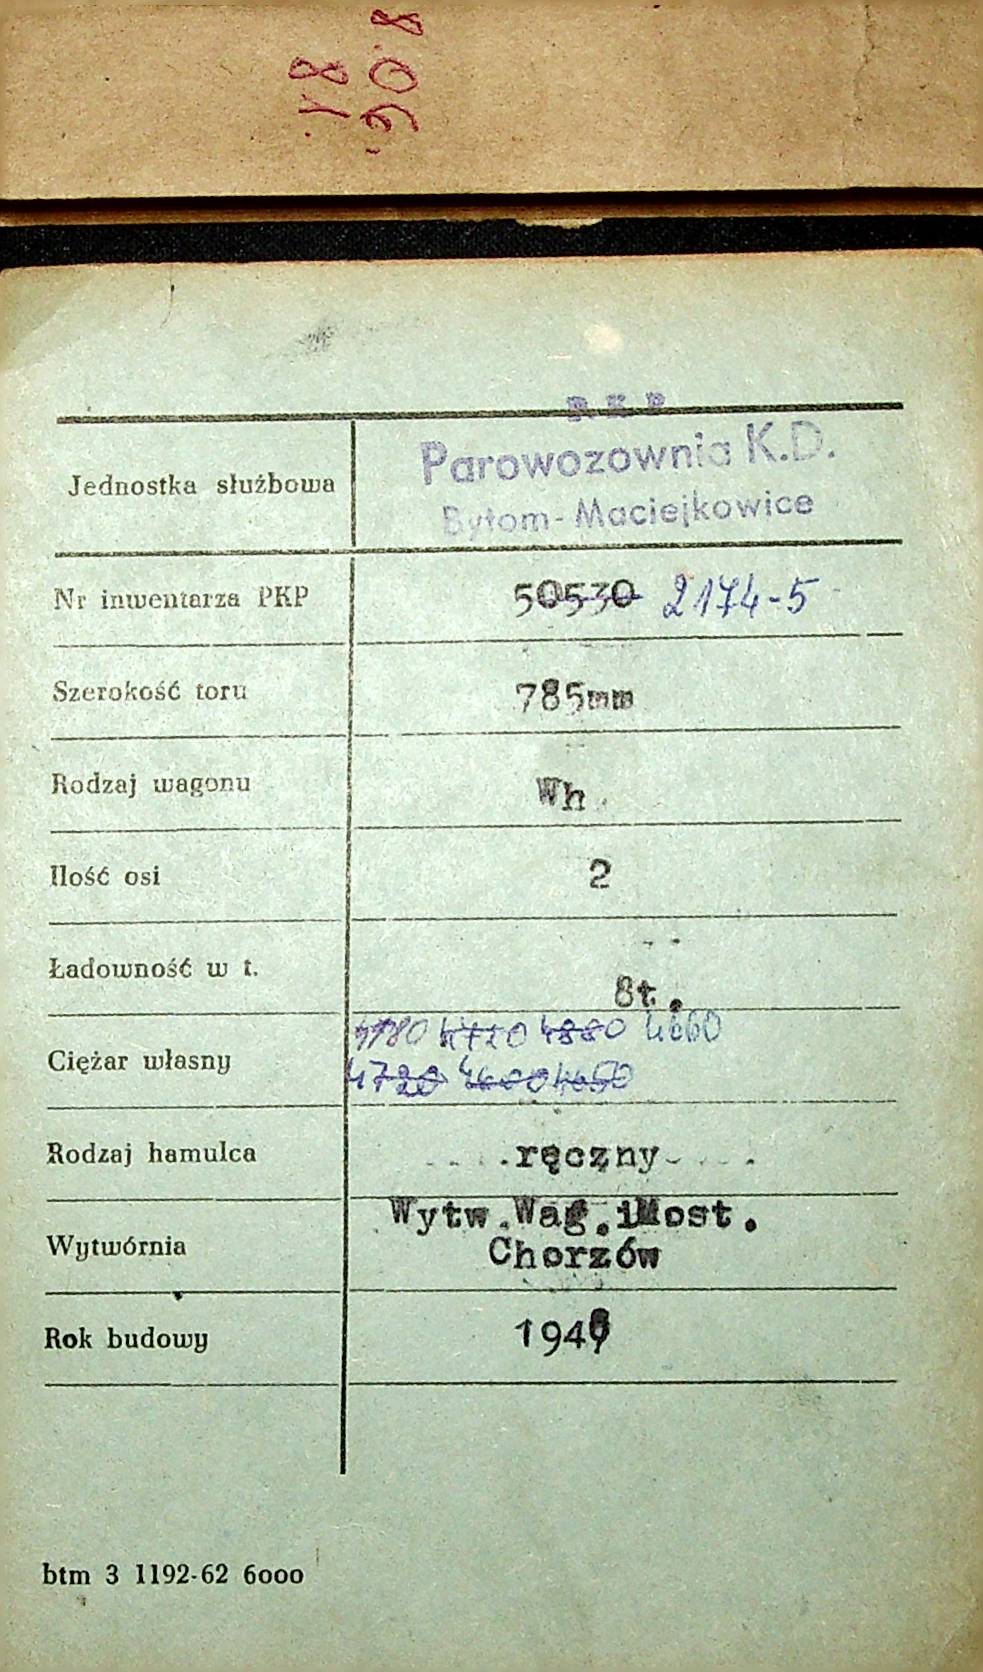 PKP
Parowozownia K.D.
Bytom-Maciejkowice
Jednostka służbowa
Nr inwentarza PKP 50530 2174-5
Szerokość toru 785mm
Rodzaj wagonu Wh.
Ilość osi 2
Ładowność w t. 8t.
4720 4880 4660
Ciężar własny
4720 4600 4650
Rodzaj hamulca ręczny
Wytw.Wag.iMost.
Wytwórnia
Chorzów
Rok budowy
btm 3 1192-62 6ooo